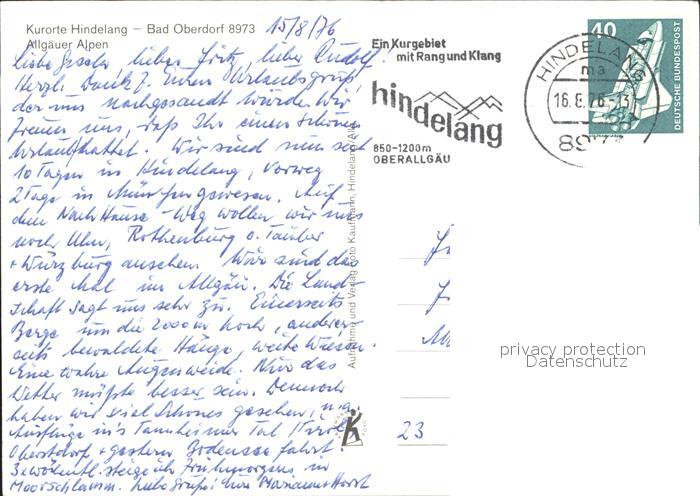 Kurorte Hindelang – Bad Oberdorf 8973
Allgäuer Alpen
15/8/76
Liebe Gisela, lieber Fritz, lieber Rudolf!
Herzl. Dank f. Euren Urlaubsgruß,
der uns nachgesandt wurde. Wir
freuen uns, daß Ihr einen schönen
Urlaub hattet. Wir sind nun seit
10 Tagen in Hindelang, vorweg
2 Tage in München gewesen. Auf
dem Nach Hause-Weg wollen wir uns
noch Ulm, Rothenburg o. Tauber
+ Würzburg ansehen. Wir sind das
erste Mal im Allgäu. Die Land-
schaft sagt uns sehr zu. Einerseits
Berge um die 2000 m hoch, anderer-
seits bewaldete Hänge, weite Wiesen.
Eine wahre Augenweide. Nur das
Wetter müßte besser sein. Dennoch
haben wir viel Schönes gesehen, u.a.
Ausflüge ins Tannheimer Tal (Tirol)
Oberstdorf + gestern Bodensee fahrt.
3x wöchentl. steige ich frühmorgens in
Moorschlamm. Liebe Grüße! Eure Marianne + Horst
Aufnahme und Verlag Foto Kaufmann, Hindelang/Allg.
Ein Kurgebiet
mit Rang und Klang
hindelang
850-1200m
OBERALLGÄU
HINDELANG
ma
16.8.76-13
8973
40
DEUTSCHE BUNDESPOST
23
privacy protection
Datenschutz